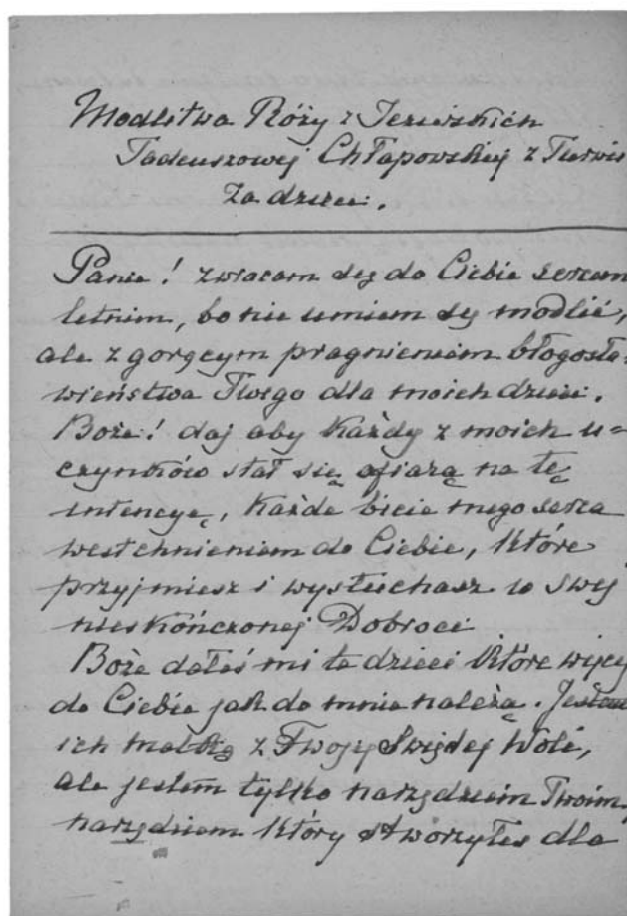 Modlitwa Róży z Jezierskich
Tadeuszowej Chłapowskiej z Turwi
za dzieci.
Panie! zwracam się do Ciebie sercem
letnim, bo nie umiem się modlić,
ale z gorącym pragnieniem błogosła-
wieństwa Twego dla moich dzieci.
Boże! daj aby każdy z moich u=
czynków stał się ofiarą na tę
intencyę, każde bicie mego serca
westchnieniem do Ciebie, które
przyjmiesz i wysłuchasz w swej
nieskończonej Dobroci
Boże dałeś mi te dzieci które więcej
do Ciebie jak do mnie należą. Jestem
ich matką z Twojej Świętej Woli,
ale jestem tylko narzędziem Twoim,
narzędziem który stworzyłeś dla